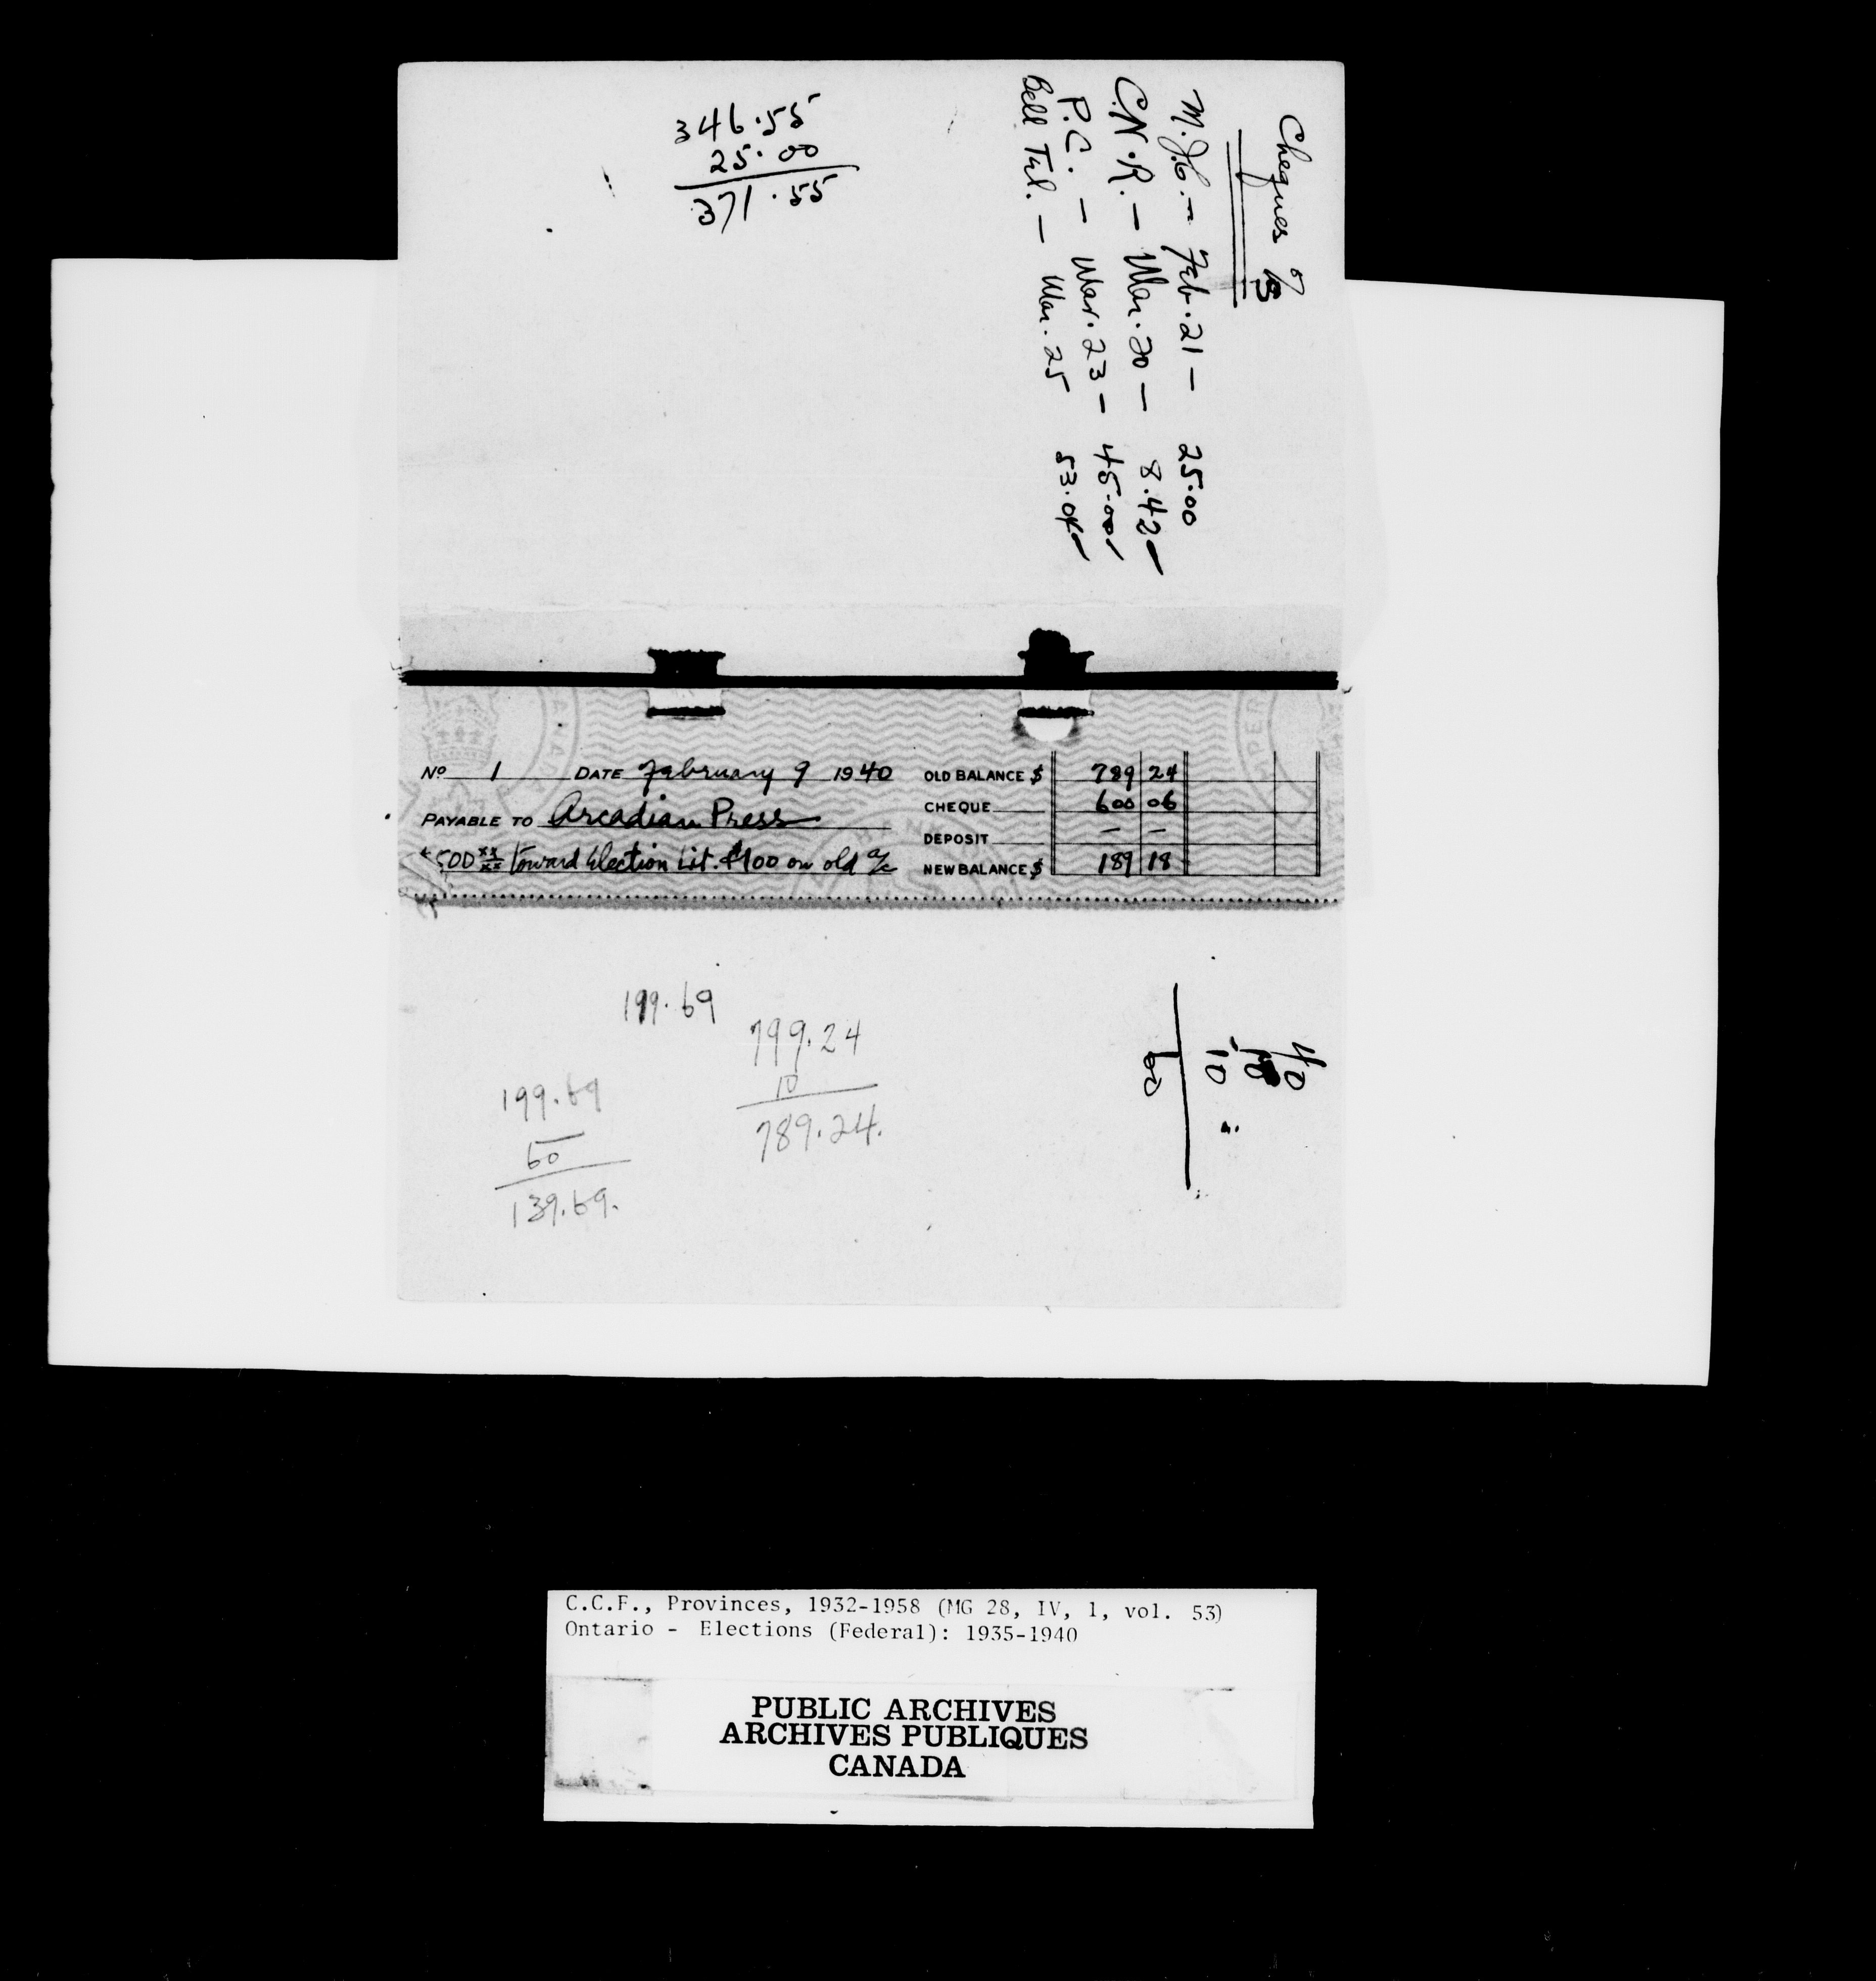 346.55
25.00
371.55
Cheques
M.J.C. – Feb. 21 – 25.00
C.N.R. – Mar. 20 – 8.42
P.C. – Mar. 23 – 45.00
Bell Tel. – Mar. 25 53.04
No 1 DATE February 9 1940 OLD BALANCE $ 789 24
CHEQUE 600 06
PAYABLE TO Arcadian Press
DEPOSIT – –
$500 xx/xx toward Election Lit. $100 on old a/c NEW BALANCE $ 189 18
199.69
799.24
10
789.24.
199.69
60
139.69.
40
10
10
60
C.C.F., Provinces, 1932-1958 (MG 28, IV, 1, vol. 53)
Ontario - Elections (Federal): 1935-1940
PUBLIC ARCHIVES
ARCHIVES PUBLIQUES
CANADA